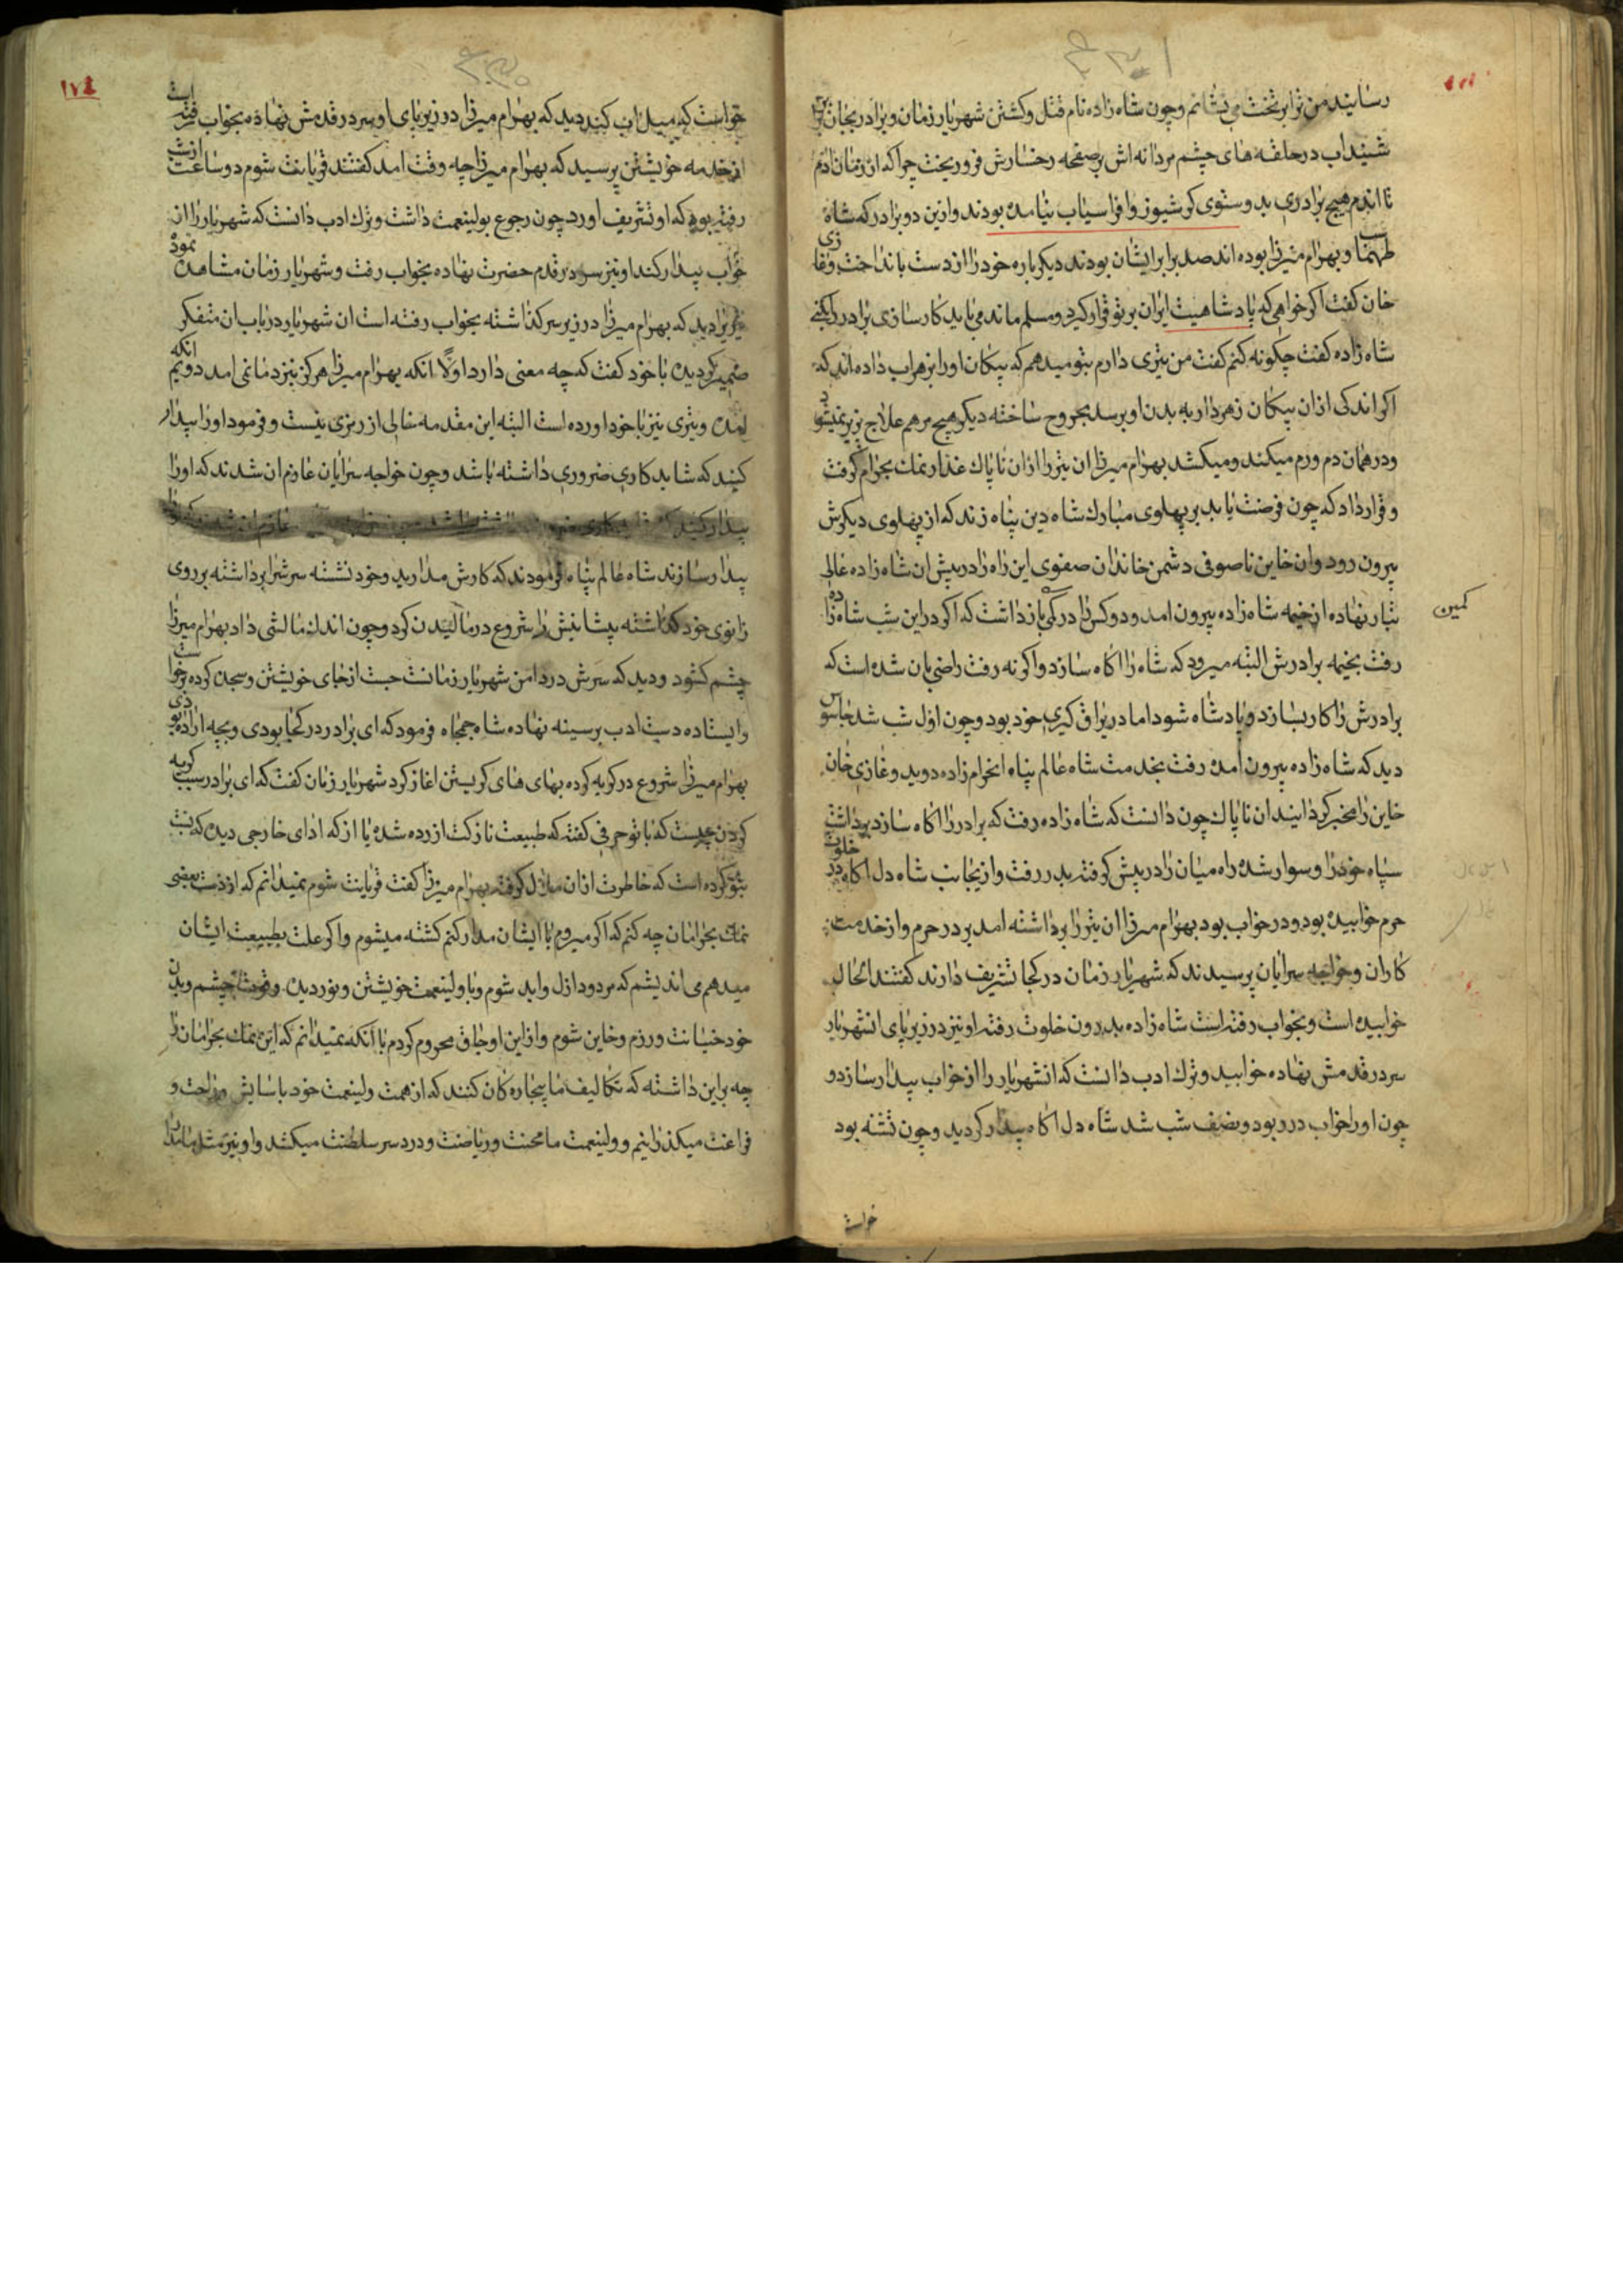 رسانیند من ترا بر تخت می نشانم و چون شاه زاده نام قتل و کشتن شهریار زمان و برادر بجان برابر
شنید اب در حلقه های چشم مردانه اش بر صفحه رخسارش فرو ریخت چرا که از زمان ادم
تا ایندم هیچ برادری بد و ستوی کرشیوز و افراسیاب نیامده بودند و ازین دو برادر که شاه
طهماسب و بهرام میرزا بوده اند صد برابر ایشان بودند دیکر باره خود را از دست بانداخت و غازی
خان کفت اکر خواهی که پادشاهیت ایران بر تو قرار کیرد و مسلم ماند می باید کار سازی برادر را بکنی
شاه زاده کفت چکونه کنم کفت من تیری دارم بتو میدهم که پیکان او را بزهراب داده اند که
اکر اندکی از ان پیکان زهردار به بدن او برسد مجروح ساخته دیکر هیچ مرهم علاج پزیر نمیشود
و در همان دم ورم میکند و میکشد بهرام میرزا ان تیر را از ان ناپاک غدار نمک بحرام کرفت
و قرار داد که چون فرصت یابد بر پهلوی مبارک شاه دین پناه زند که از پهلوی دیکرش
بیرون رود و ان خاین ناصوفی دشمن خاندان صفوی این راه را در پیش ان شاه زاده عالی
تبار نهاده از خیمه شاه زاده بیرون امد و دو کس را در کمین باز داشت که اکر در این شب شاه زاده
کمین
رفت بخیمه برادرش البته میرود که شاه را اکاه سازد و اکر نه رفت راضی بان شده است که
برادرش را کار بسازد و پادشاه شود اما در یراق کیری خود بود و چون اول شب شد جاسوس
دید که شاه زاده بیرون امده رفت بخدمت شاه عالم پناه انحرام زاده دوید و غازی خان
خاین را مخبر کردانید ان ناپاک چون دانست که شاه زاده رفت که برادر را اکاه سازد برداشت
سپاه خود را و سوار شده راه میان را در پیش کرفته بدر رفت و از یجانب شاه دل اکاه در خلوت
حرم خوابیده بود و در خواب بود بهرام میرزا ان تیر را برداشته امد بر در حرم و از خدمت
کاران و خواجه سرایان پرسیدند که شهریار زمان در کجا تشریف دارند کفتند الحال
خوابیده است و بخواب رفته است شاه زاده بدرون خلوت رفته او نیز در زیر پای انشهریار
سر در قدمش نهاده خوابید و ترک ادب دانست که انشهریار را از خواب بیدار سازد و
چون او را خواب در ربود و نصف شب شد شاه دل اکاه بیدار کردید و چون تشنه بود
خواست
خواست که میل اب کند دید که بهرام میرزا در زیر پای او سر در قدمش نهاده بخواب رفته است
از خدمه خویشتن پرسید که بهرام میرزا چه وقت امد کفتند قربانت شوم دو ساعت از شب
رفته بود که او تشریف اورد چون رجوع بولینعمت داشت و ترک ادب دانست که شهریار را از
خواب بیدار کند او نیز سر در قدم حضرت نهاده بخواب رفت و شهریار زمان مشاهده نمود
تیر را دید که بهرام میرزا در زیر سر کذاشته بخواب رفته است ان شهریار در باب ان متفکر
ضمیر کردیده با خود کفت که چه معنی دارد اولا انکه بهرام میرزا هرکز بنزد ما نمی امد دویم انکه
امده و تیری نیز با خود اورده است البته این مقدمه خالی از رمزی نیست و فرمود او را بیدار
کنید که شاید کاری ضروری داشته باشد و چون خواجه سرایان عازم ان شدند که او را
بیدار سازند شاه عالم پناه فرمودند که کارش مدارید و خود نشسته سرش را برداشته بر روی
زانوی خود کذاشته پیشانیش را شروع در مالیدن کرد و چون اندک مالشی داد بهرام میرزا
چشم کشود و دید که سرش در دامن شهریار زمانست جست از جای خویشتن و سجده کرده برخواست
و ایستاده دست ادب بر سینه نهاده شاه جمجاه فرمود که ای برادر در کجا بودی و بچه اراده بودی
بهرام میرزا شروع در کریه کرده بهای های کریستن اغاز کرد شهریار زمان کفت که ای برادر سبب کریه
کردن چیست که با تو حرفی کفته که طبیعت نازکت ازرده شده یا از که ادای خارجی دیده که نسبت
بتو کرده است که خاطرت از ان ملال کرفته بهرام میرزا کفت قربانت شوم نمیدانم که از دست بعضی
نمک بحرامان چه کنم که اکر میروم با ایشان مدار کنم کشته میشوم و اکر علت بطبیعت ایشان
میدهم می اندیشم که مردود ازل و ابد شوم و با ولینعمت خویشتن و نور دیده چشم و بدن
خود خیانت ورزم و خاین شوم و از این اوجاق محروم کردم با انکه نمیدانم که این نمک بحرامان را
چه بر این داشته که تکالیف ما بیچاره کان کنند که از همت ولینعمت خود باسایش و راحت و
فراغت میکذرانیم و ولینعمت ما محنت و ریاضت و درد سر سلطنت میکشد و او نیز